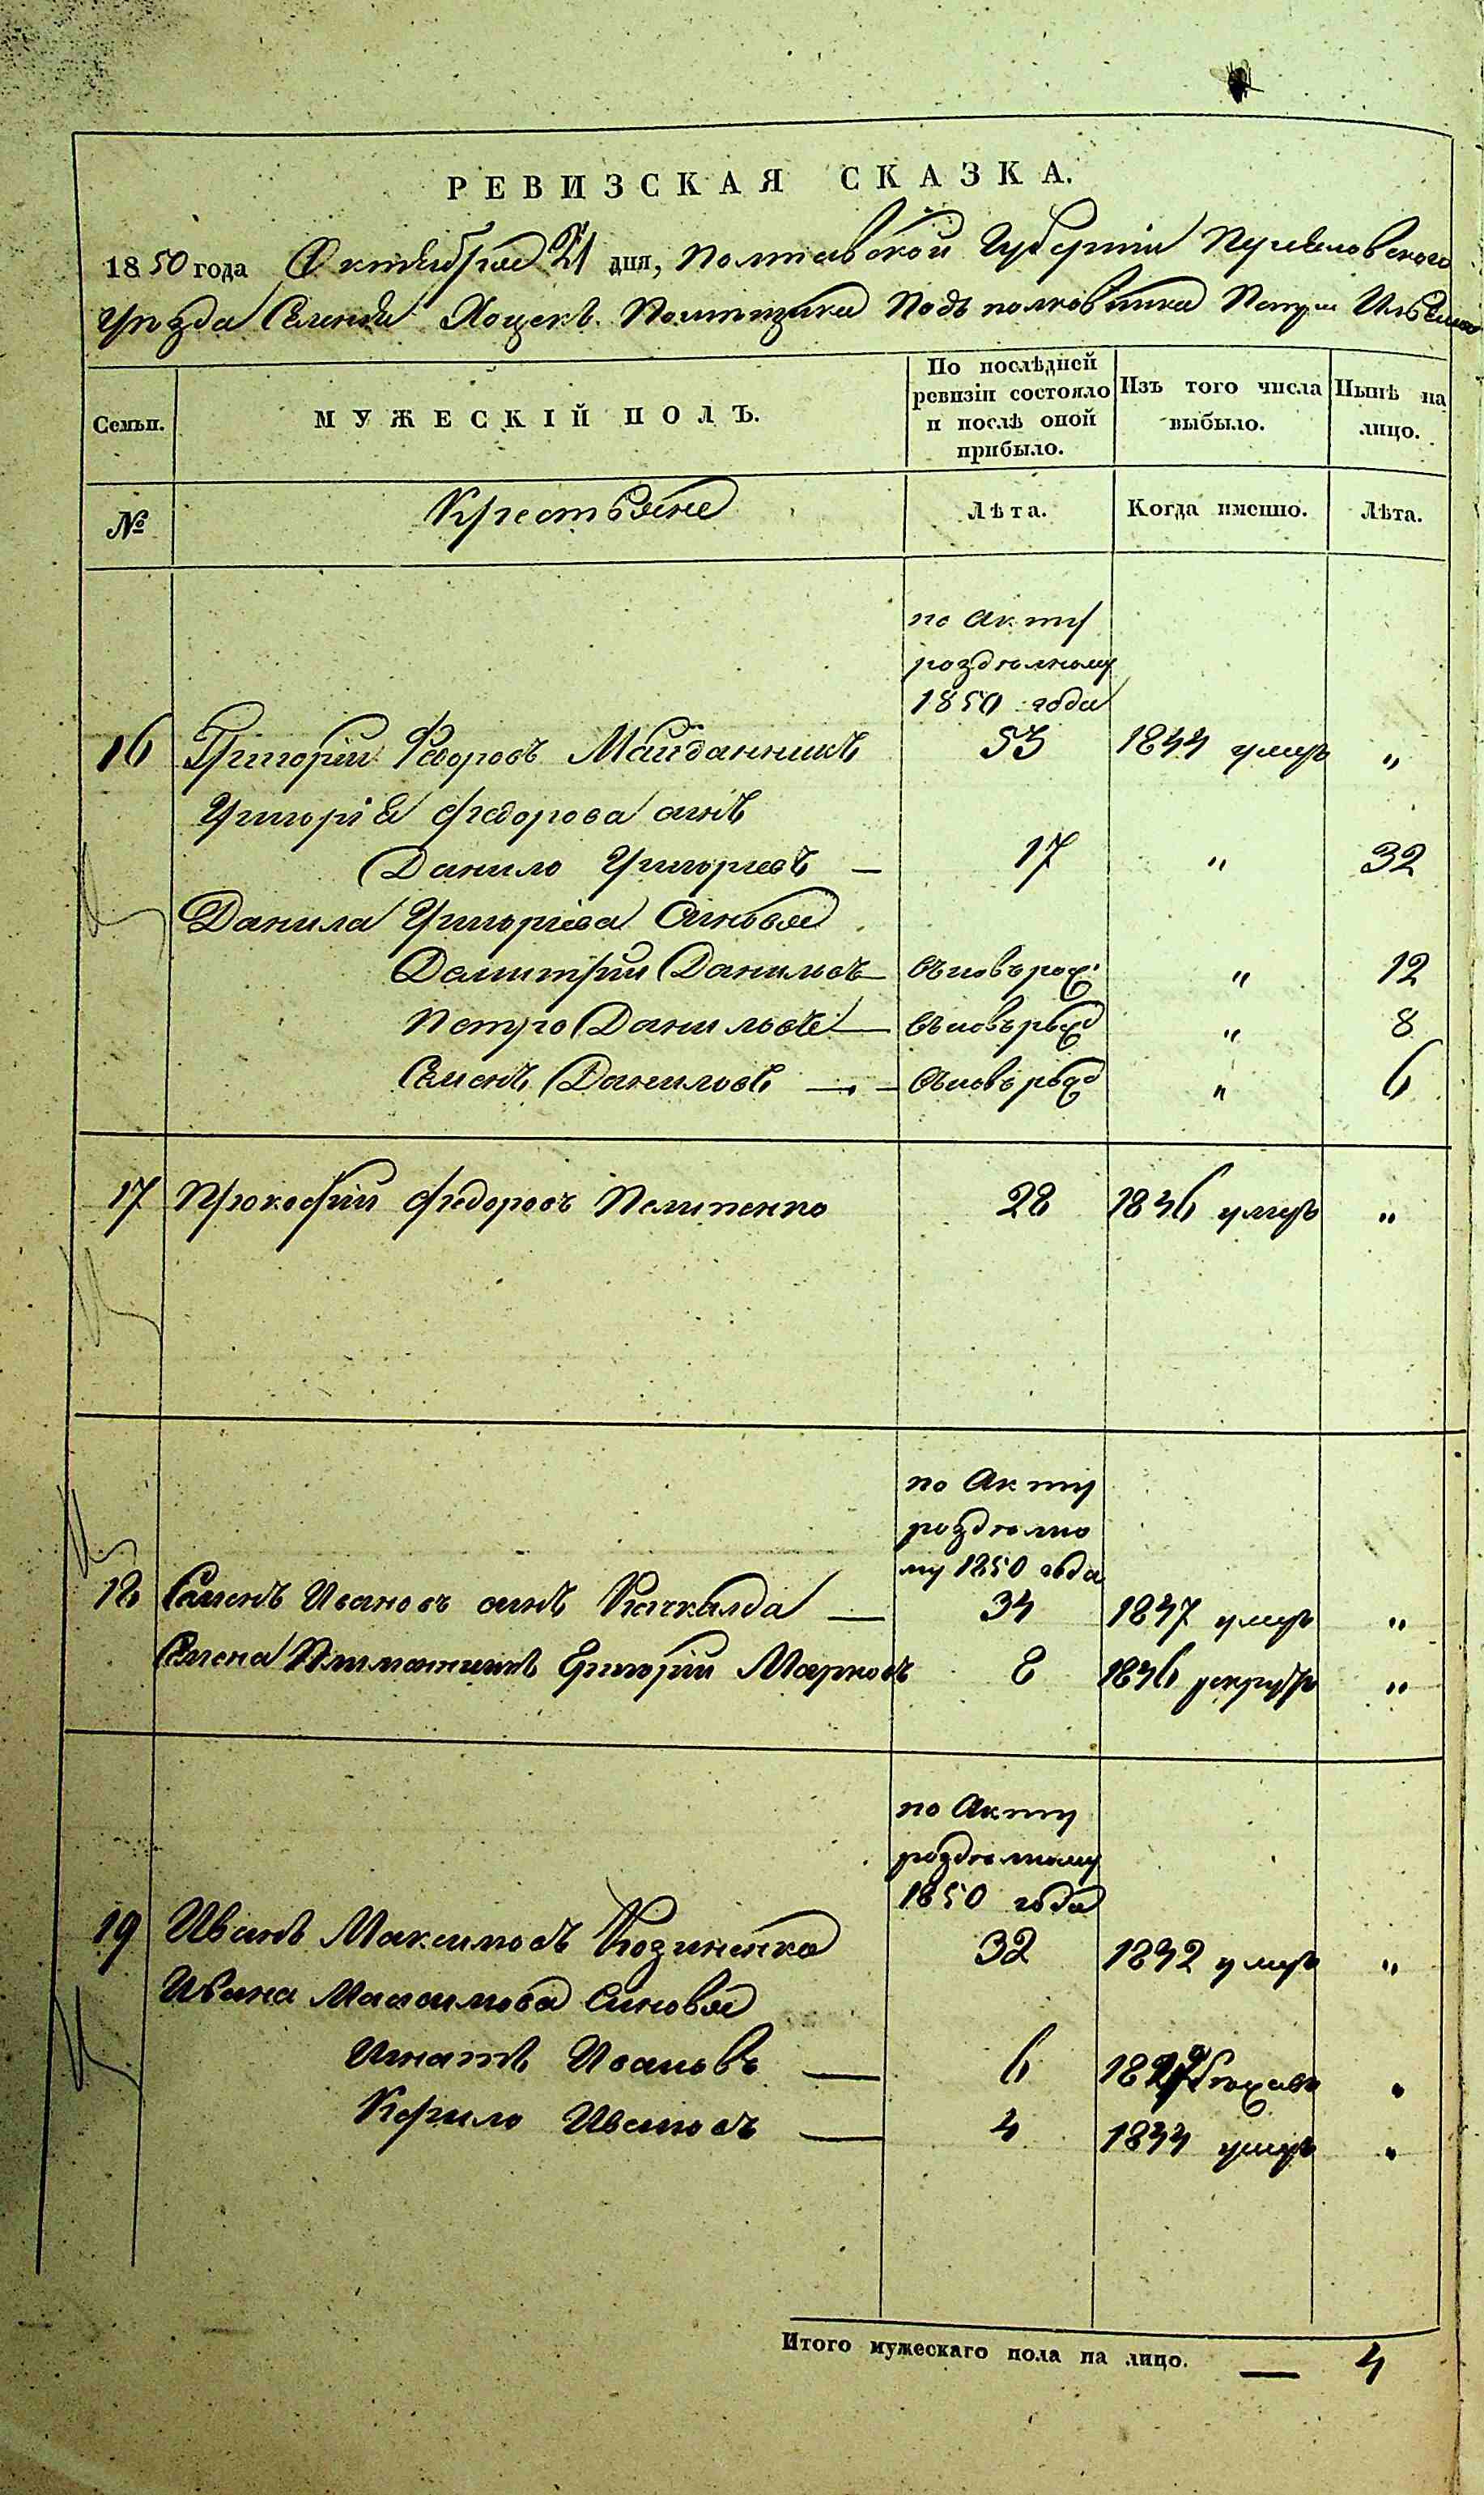 РЕВИЗСКАЯ СКАЗКА.
1850 года Октября 21 дня, Полтавской Губернии
уезда Селения Помещика Подъ полковника Петра
Семьи. МУЖЕСКІЙ ПОЛЪ. По послѣдней ревизіи состояло и послѣ оной прибыло. Изъ того числа выбыло. Нынѣ на лицо.
№ Крестьяне Лѣта. Когда именно. Лѣта.
по Акту
роздѣлному
1850 года
16 Григорій Федоровъ Майданникъ 53 1844 умеръ „
Григорія Федорова синъ
Данило Григорьевъ — 17 „ 32
Данила Григоріева Синовья
Дмитрій Даниловъ — вновь рож: „ 12
Петро Даниловъ — вновь рожд „ 8
Семенъ Даниловъ — вновь рожд „ 6
17 Прокофій Федоровъ Пелипенко 28 1836 умеръ „
по Акту
роздѣлно
му 1850 года
18 Семенъ Ивановъ синъ 34 1847 умеръ „
Семена Григорій Марковъ 8 1846 рекрутъ „
по Акту
роздѣлному
1850 года
19 Иванъ Максимовъ Козиненко 32 1842 умеръ „
Ивана Максимова Синовья
Игнатъ Ивановъ — 6 „
Кирило Ивановъ — 4 1844 умеръ „
Итого мужескаго пола на лицо. — 4